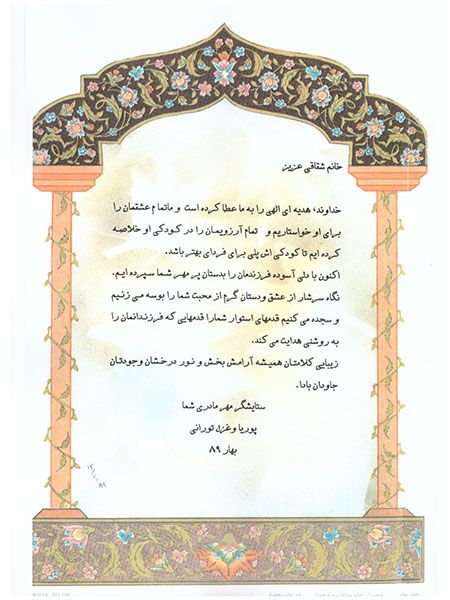 خانم شقاقی عزیز
خداوند، هدیه ای الهی را به ما عطا کرده است و ماتمام عشقمان را
برای او خواستاریم و تمام آرزویمان را در کودکی او خلاصه
کرده ایم تا کودکی اش پلی برای فردای بهتر باشد.
اکنون با دلی آسوده فرزندمان را بدستان پر مهر شما سپرده ایم.
نگاه سرشار از عشق ودستان گرم از محبت شما را بوسه می زنیم
و سجده می کنیم قدمهای استوار شما را قدمهایی که فرزندانمان را
به روشنی هدایت می کند.
زیبایی کلامتان همیشه آرامش بخش و نور درخشان وجودتان
جاودان بادا.
ستایشگر مهر مادری شما
پوریا وغزل تورانی
بهار ۸۹